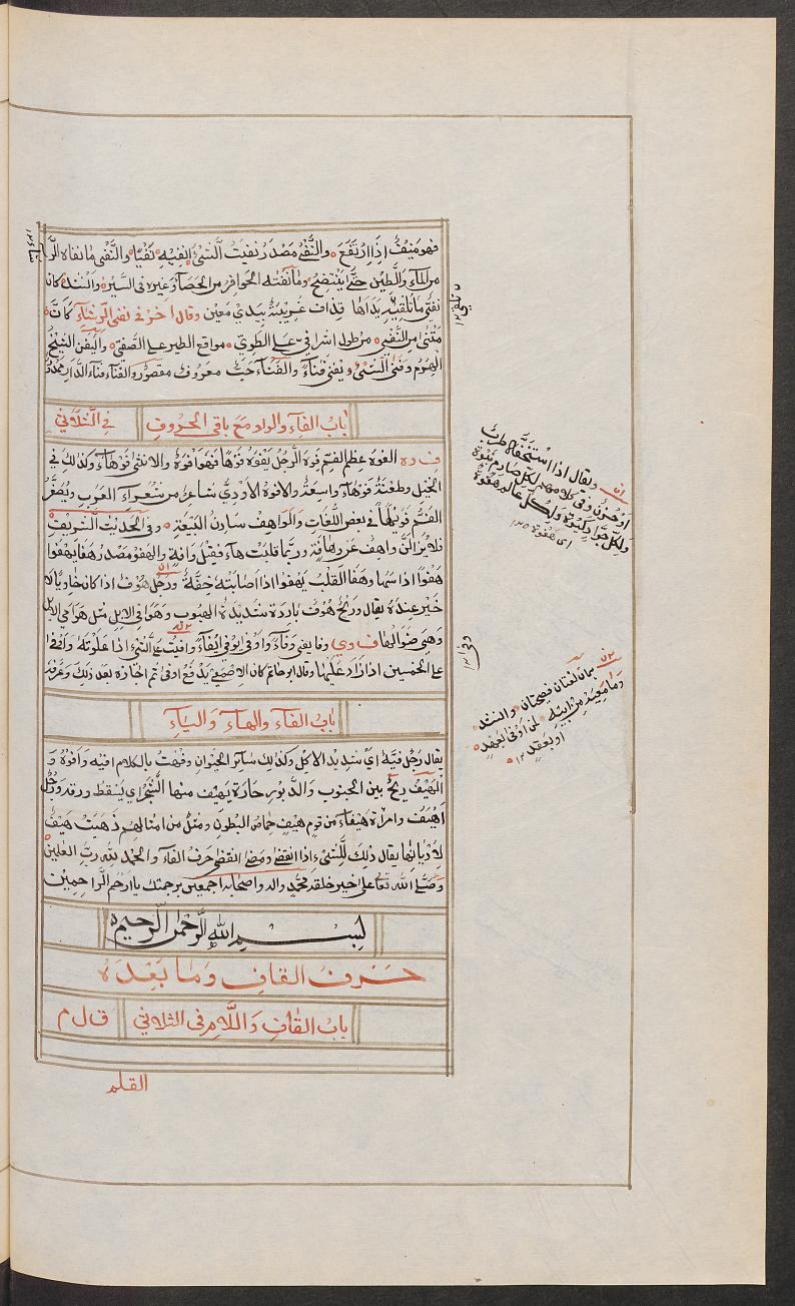 فهو منيف اذا ارتفع والنفي مصدر نفيت الشئ انفيه نفيا والنفي ما نفاه الرشا
من الماء والطين حتى ينتضح وما نفته الحوافر من الحصا وغيره في السير وانشد كان
نفي ما تلقيه يداها قذاف غريبة بيدي معين وقال اخر في نفي الرشاء كان
متنيه من النفي من طول اشرافي على الطوي مواقع الطير على الصفي واليفن الشيخ
الهرم وفني الشئ يفنى فناء والفناء حب معروف مقصور والفناء فناء الدار ممدود
باب الفاء والواو مع باقي الحروف في الثلاثي
ف و ه الفوه عظم الفم فوه الرجل يفوه فوها فهو افوه والانثى فوهاء وكذلك في
الخيل وطعنة فوهاء واسعة والافوه الاودي شاعر من شعراء العرب ويصغر
الفم فويها في بعض اللغات والواهف سادن البيعة وفي الحديث الشريف
فلا يزالن واهف عن وهافته وربما قلبت هاء فقيل وافه والهفو مصدر هفا يهفوا
هفوا اذا سها وهفا القلب يهفوا اذا اصابته خفة ورجل هوف اذا كان خاويا لا
خير عنده يقال وريح هوف باردة شديدة الهبوب وهوافي الابل مثل هوامي الابل
وهي ضوالها ف وي وفا يفي وفاء واوفى يوفي ايفاء وافيت على الشئ اذا علوته واوفى
على الخمسين اذا زاد عليها وقال ابو حاتم كان الاصمعي يدفع اوفى ثم اجازه بعد ذلك وعرفه
باب الفاء والهاء والياء
يقال رجل فيه اي شديد الاكل وكذلك سائر الحيوان وفهت بالكلام افيه وافوه و
الهيف ريح بين الجنوب والدبور حارة يهيف منها الشجر اي يسقط ورقه ورجل
اهيف وامراة هيفاء من قوم هيف خماص البطون ومثل من امثالهم ذهبت هيف
لاديانها يقال ذلك للشئ اذا انقضى ومضى انقضى حرف الفاء والحمد لله رب العلمين
وصلى الله تعالى على خير خلقه محمد واله واصحابه اجمعين برحمتك يا ارحم الراحمين
بسم الله الرحمن الرحيم
حرف القاف وما بعده
باب القاف واللام في الثلاثي ق ل م
القلم
ويقال اذا استخفاه طرب
او حزن وفي كلامهم لكل صارم نبوة
ولكل جواد كبوة ولكل عالم هفوة
لغتان فصيحتان وانشد